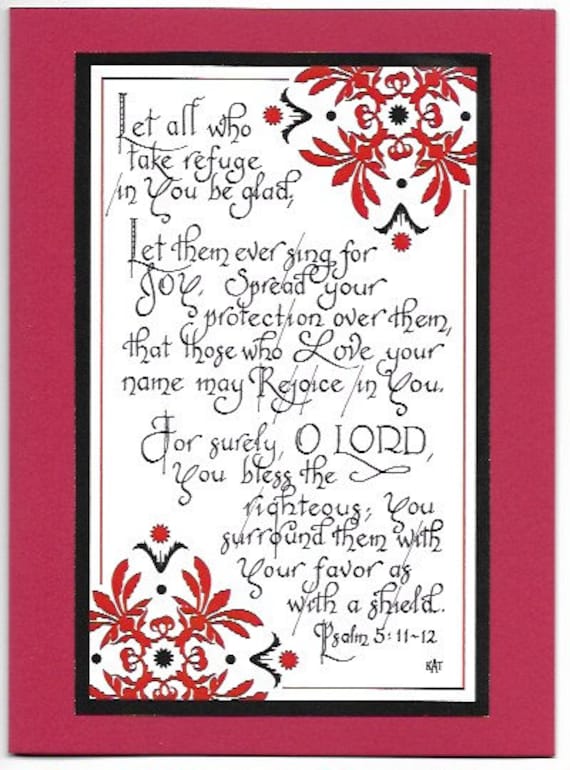 Let all who
take refuge
in You be glad;
Let them ever sing for
JOY. Spread your
protection over them,
that those who Love your
name may Rejoice in You.
For surely, O LORD,
You bless the
righteous; You
surround them with
Your favor as
with a shield.
Psalm 5:11~12
KAT